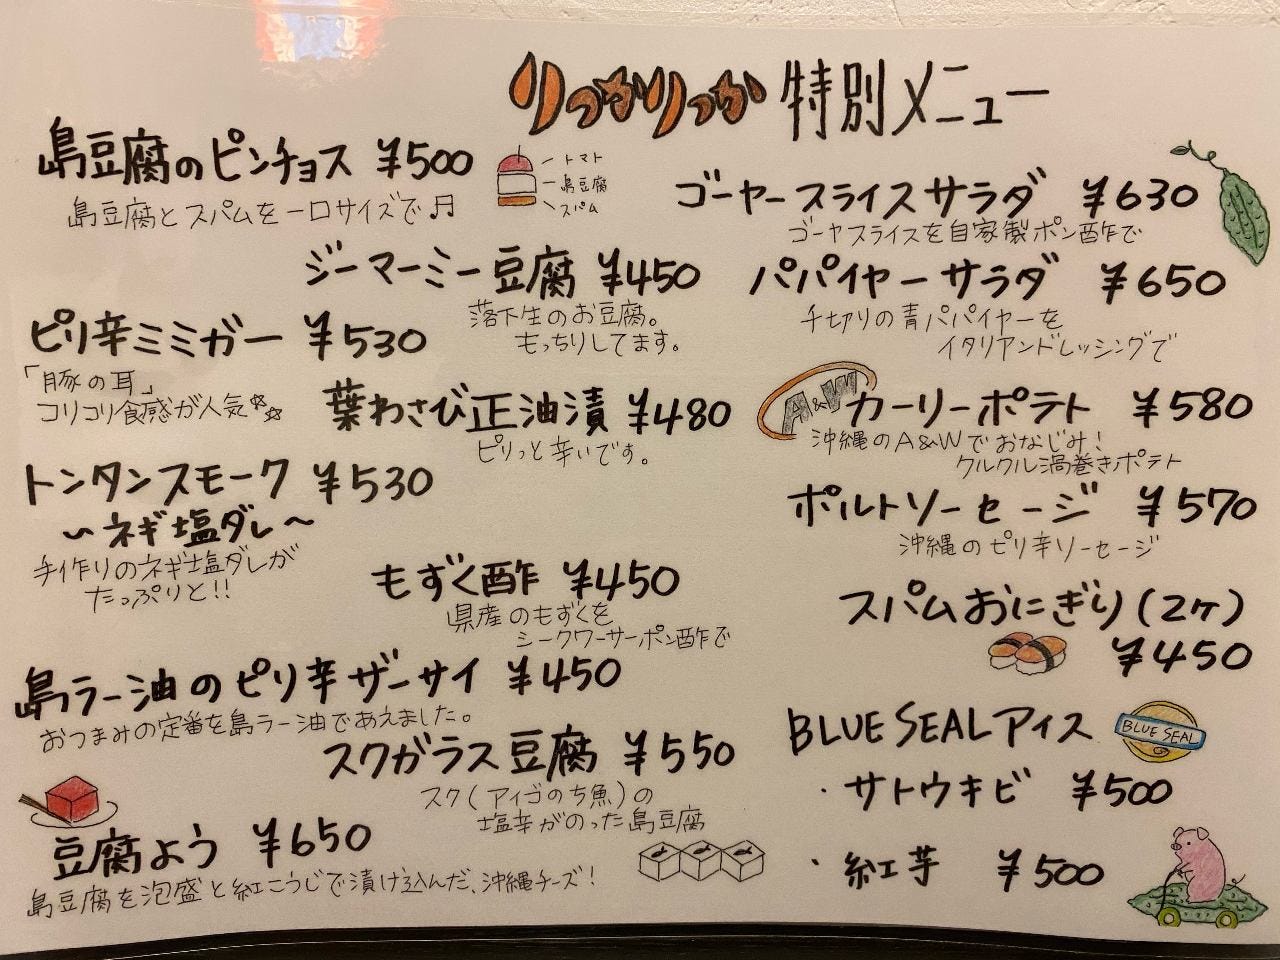 りっかりっか 特別メニュー
島豆腐のピンチョス ¥500
島豆腐とスパムを一口サイズで♬
トマト
島豆腐
スパム
ジーマーミー豆腐 ¥450
落下生のお豆腐。
もっちりしてます。
ピリ辛ミミガー ¥530
「豚の耳」
コリコリ食感が人気☆☆
葉わさび正油漬 ¥480
ピリっと辛いです。
トンタンスモーク ¥530
~ネギ塩ダレ~
手作りのネギ塩ダレが
たっぷりと!!
もずく酢 ¥450
県産のもずくを
シークワーサーポン酢で
島ラー油のピリ辛ザーサイ ¥450
おつまみの定番を島ラー油であえました。
スクガラス豆腐 ¥550
スク(アイゴのち魚)の
塩辛がのった島豆腐
豆腐よう ¥650
島豆腐を泡盛と紅こうじで漬け込んだ、沖縄チーズ!
ゴーヤースライスサラダ ¥630
ゴーヤスライスを自家製ポン酢で
パパイヤーサラダ ¥650
千切りの青パパイヤーを
イタリアンドレッシングで
A&W カーリーポテト ¥580
沖縄のA&Wでおなじみ!
クルクル渦巻きポテト
ポルトソーセージ ¥570
沖縄のピリ辛ソーセージ
スパムおにぎり(2ヶ)
¥450
BLUE SEALアイス
BLUE SEAL
・サトウキビ ¥500
・紅芋 ¥500